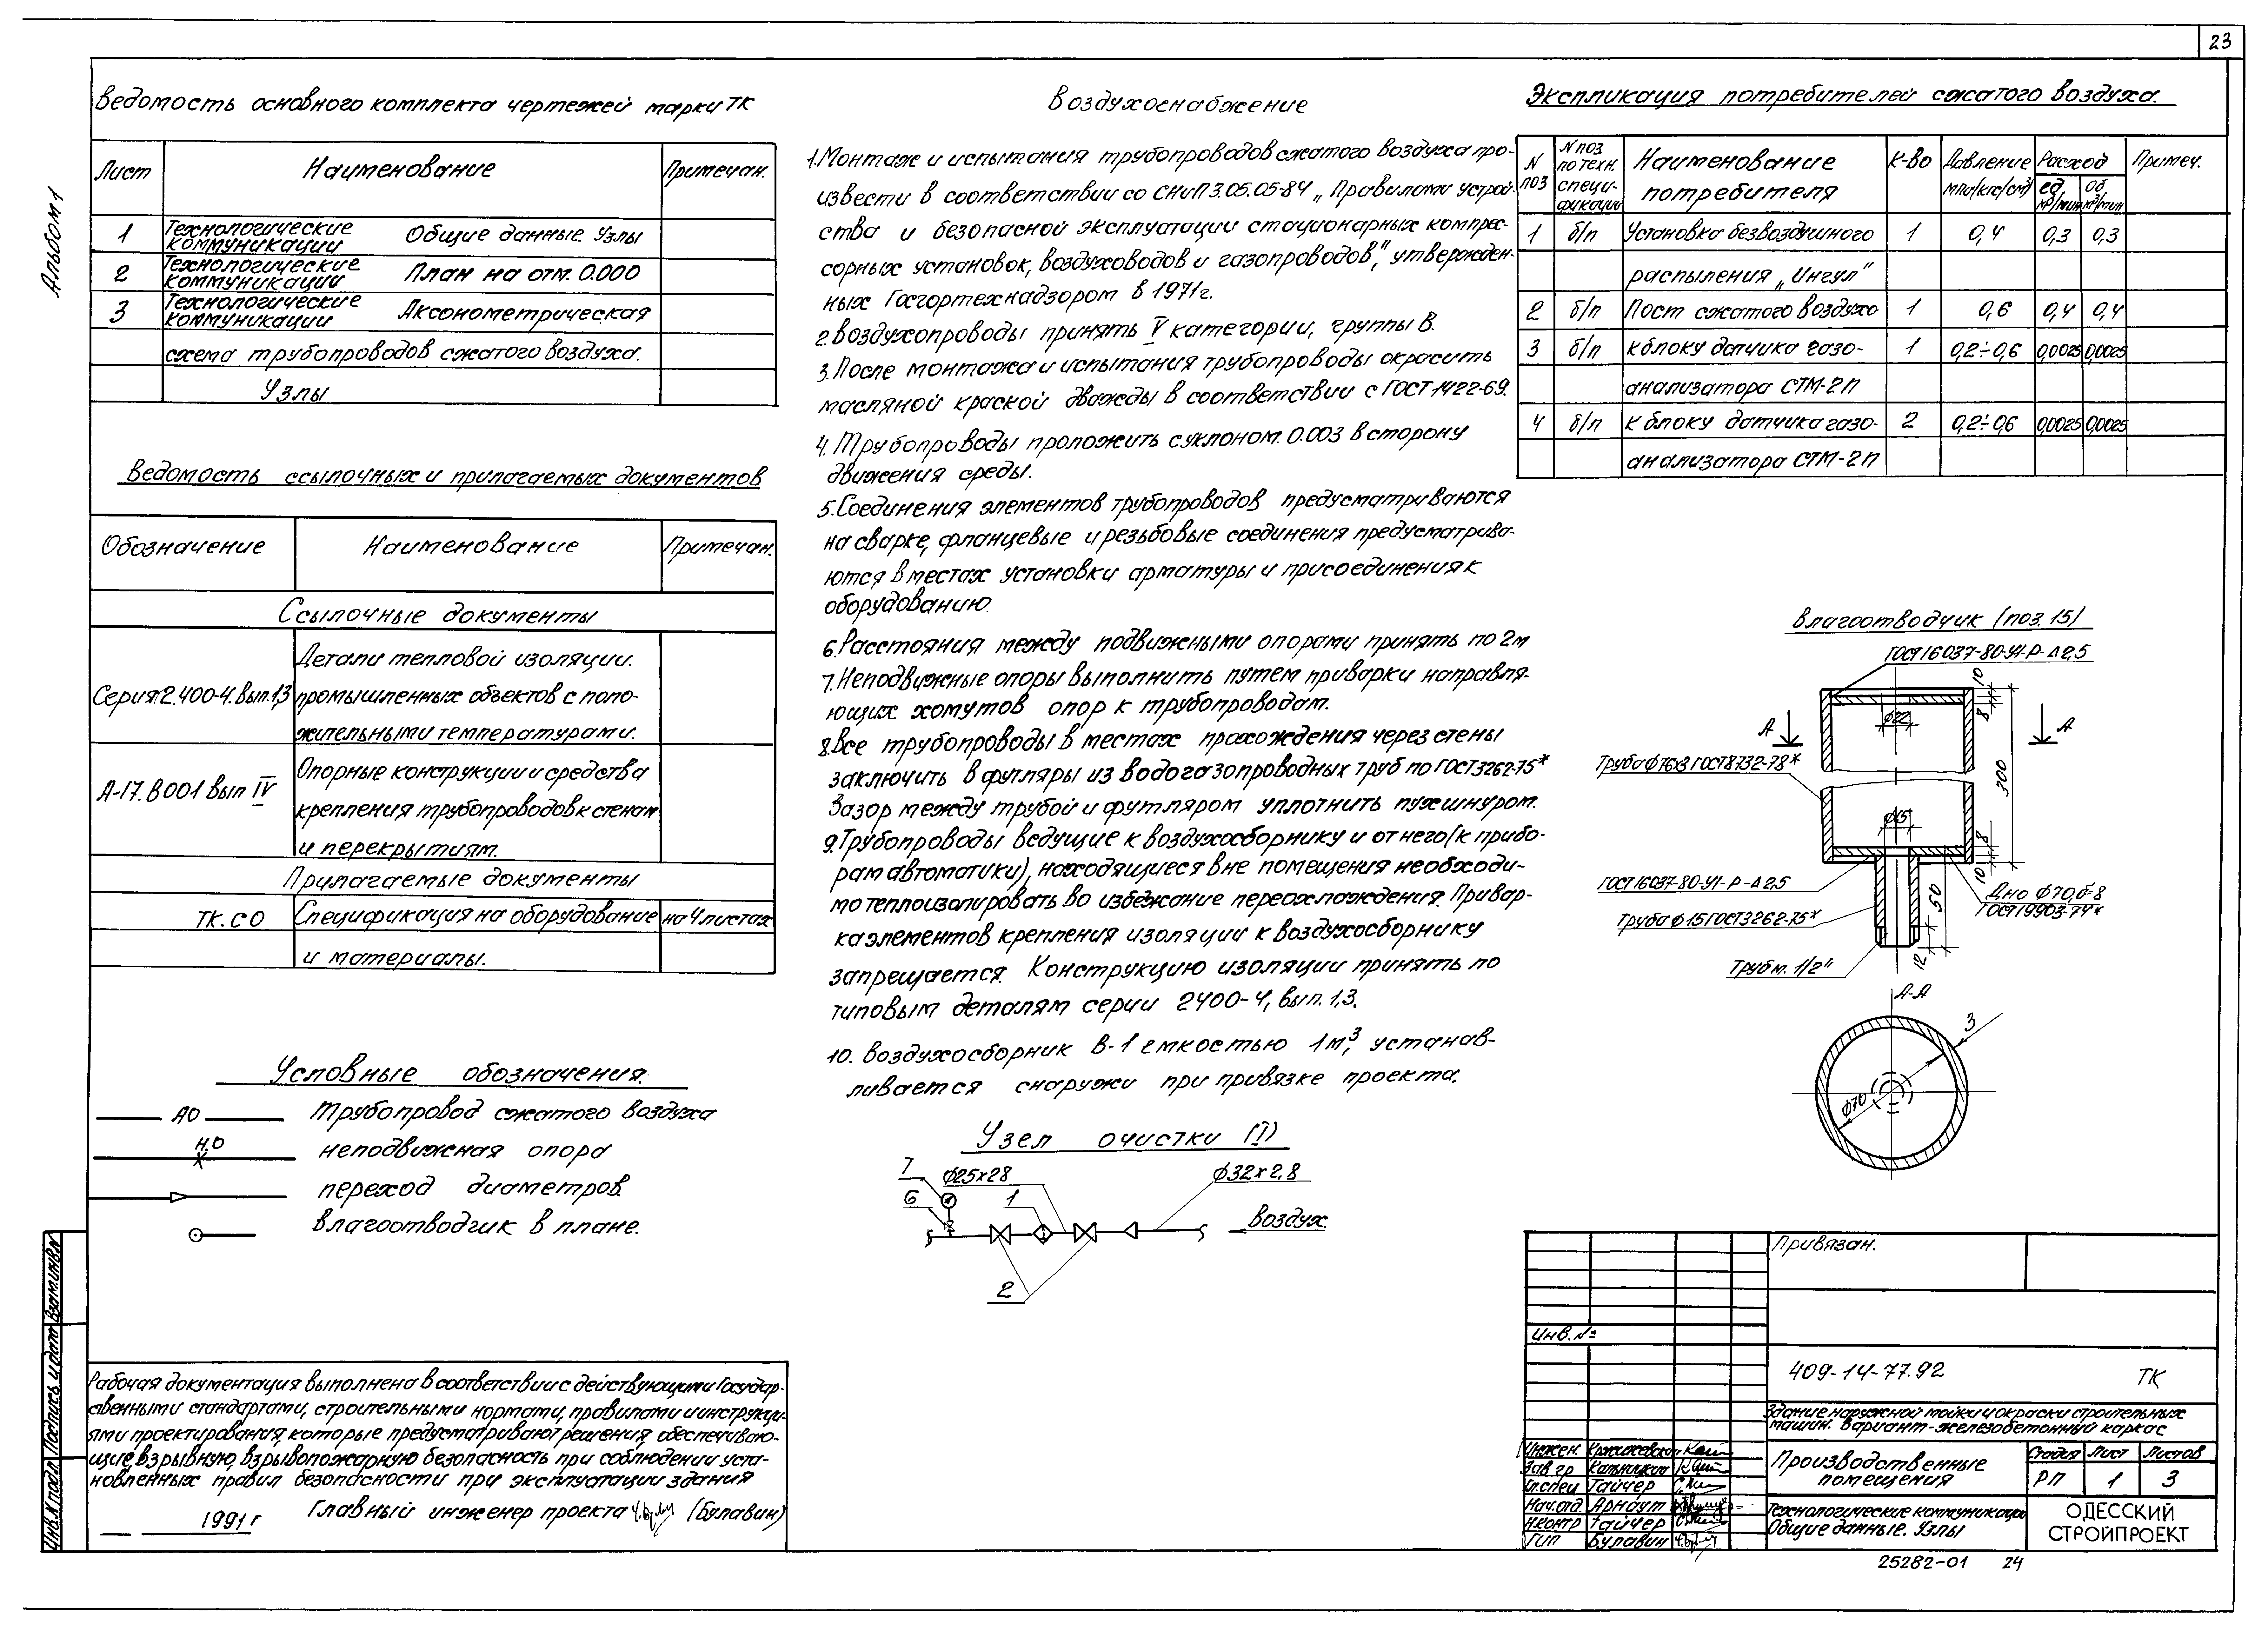 23
Альбом 1
Ведомость основного комплекта чертежей марки ТК
Лист Наименование Примечан.
1 Технологические коммуникации Общие данные. Узлы
2 Технологические коммуникации План на отм. 0.000
3 Технологические коммуникации Аксонометрическая
схема трубопроводов сжатого воздуха.
Узлы
Ведомость ссылочных и прилагаемых документов
Обозначение Наименование Примечан.
Ссылочные документы
Детали тепловой изоляции.
Серия 2.400-4. вып.1,3 промышленных объектов с поло-
жительными температурами.
Опорные конструкции и средства
А-17.В001 вып IV крепления трубопроводов к стенам
и перекрытиям.
Прилагаемые документы
ТК.СО Спецификация на оборудование на 4 листах
и материалы.
Условные обозначения.
АО Трубопровод сжатого воздуха
Н.О неподвижная опора
переход диаметров.
влагоотводчик в плане.
Рабочая документация выполнена в соответствии с действующими Государ-
ственными стандартами, строительными нормами, правилами и инструкци-
ями проектирования, которые предусматривают решения, обеспечиваю-
щие взрывную, взрывопожарную безопасность при соблюдении уста-
новленных правил безопасности при эксплуатации здания
1991 г Главный инженер проекта (Булавин)
Воздухоснабжение
1. Монтаж и испытания трубопроводов сжатого воздуха про-
извести в соответствии со СНиП 3.05.05-84 „Правилами устрой-
ства и безопасной эксплуатации стационарных компрес-
сорных установок, воздуховодов и газопроводов", утвержден-
ных Госгортехнадзором в 1971г.
2. Воздухопроводы принять V категории, группы В.
3. После монтажа и испытания трубопроводы окрасить
масляной краской дважды в соответствии с ГОСТ 14.22-69.
4. Трубопроводы проложить с уклоном. 0.003 в сторону
движения среды.
5. Соединения элементов трубопроводов предусматриваются
на сварке, фланцевые и резьбовые соединения предусматрива-
ются в местах установки арматуры и присоединения к
оборудованию.
6. Расстояния между подвижными опорами принять по 2м
7. Неподвижные опоры выполнить путем приварки направля-
ющих хомутов опор к трубопроводам.
8. Все трубопроводы в местах прохождения через стены
заключить в футляры из водогазопроводных труб по ГОСТ 3262-75*
Зазор между трубой и футляром уплотнить пухшнуром.
9. Трубопроводы ведущие к воздухосборнику и от него (к прибо-
рам автоматики), находящиеся вне помещения необходи-
мо теплоизолировать во избежание переохлаждения. Привар-
ка элементов крепления изоляции к воздухосборнику
запрещается. Конструкцию изоляции принять по
типовым деталям серии 2400-4, вып. 1,3.
10. Воздухосборник В-1 емкостью 1м³, устанав-
ливается снаружи при привязке проекта.
Узел очистки (I)
7 ф25х28 1 ф32х2,8
6
воздух.
2
Экспликация потребителей сжатого воздуха.
N поз N поз по техн. специ-фикации Наименование потребителя К-во Давление мпа/кгс/см²/ Расход ед, м³/мин Об, м³/мин Примеч.
1 б/п Установка безвоздушного 1 0,4 0,3 0,3
распыления „Ингул"
2 б/п Пост сжатого воздуха 1 0,6 0,4 0,4
3 б/п к блоку датчика газо- 1 0,2÷0,6 0,0025 0,0025
анализатора СТМ-2П
4 б/п к блоку датчика газо- 2 0,2÷0,6 0,0025 0,0025
анализатора СТМ-2П
Влагоотводчик (поз. 15)
ГОСТ 16037-80-У1-Р-⊿2,5
10
8
ф22
А А
Труба ф76х3 ГОСТ 8732-78*
300
ф15
8
10
ГОСТ 16037-80-У1-Р-⊿2,5
50
Дно ф70, б-8
ГОСТ 19903-74*
Труба ф15 ГОСТ 3262-75*
12
Труб м. 1/2"
А-А
3
ф70
Привязан.
Инв. №
409-14-77.92 ТК
Здание наружной мойки и окраски строительных
машин. Вариант-железобетонный каркас
Инжен.
Зав гр Кальницкий
Гл.спец Гайчер
Нач.отд. Арнаут
Н.контр Гайчер
ГИП Булавин
Производственные помещения
Стадия Лист Листов
РП 1 3
Технологические коммуникации
Общие данные. Узлы
ОДЕССКИЙ
СТРОЙПРОЕКТ
25282-01 24
Инв.N подл. Подпись и дата Взам.инв.N